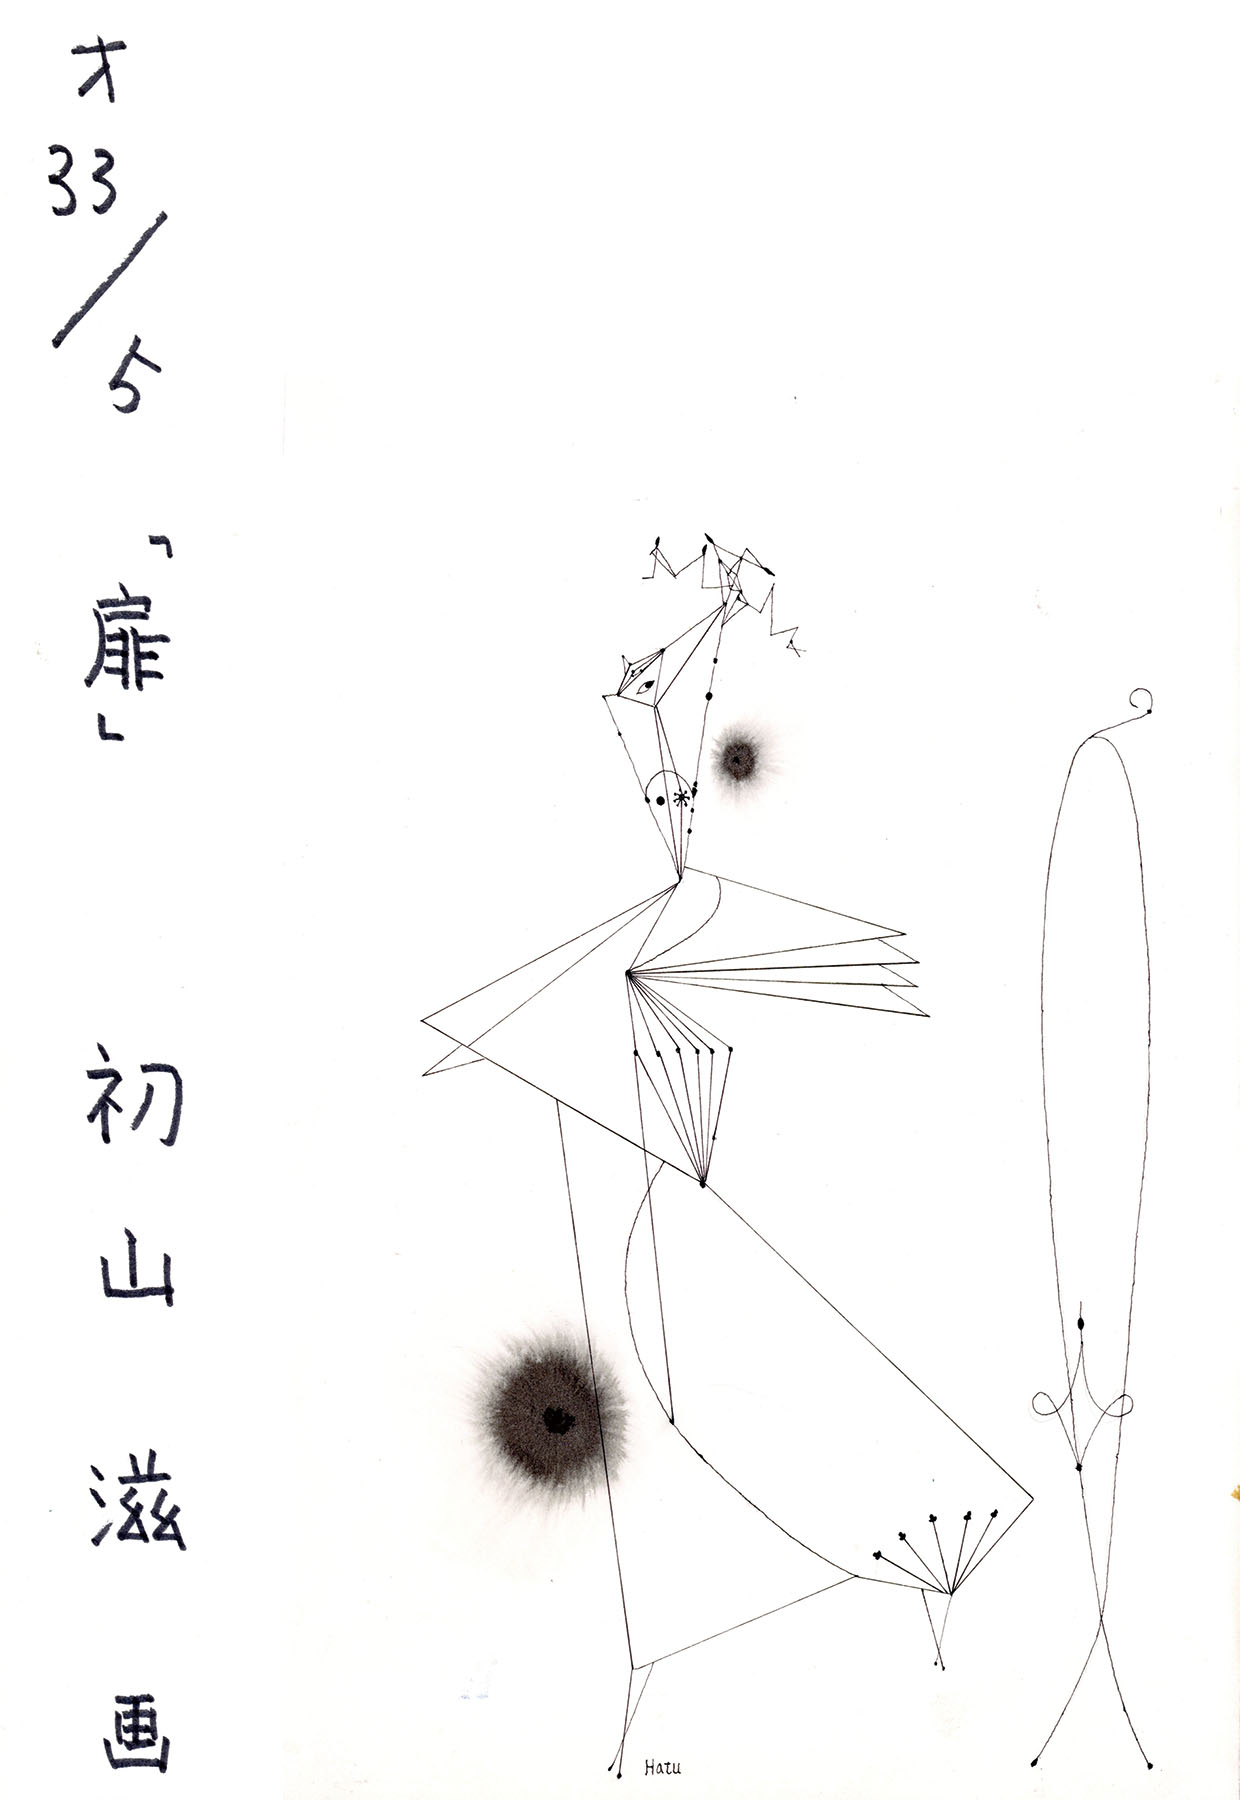 才33/5「扉」 初山滋 画
Hatu